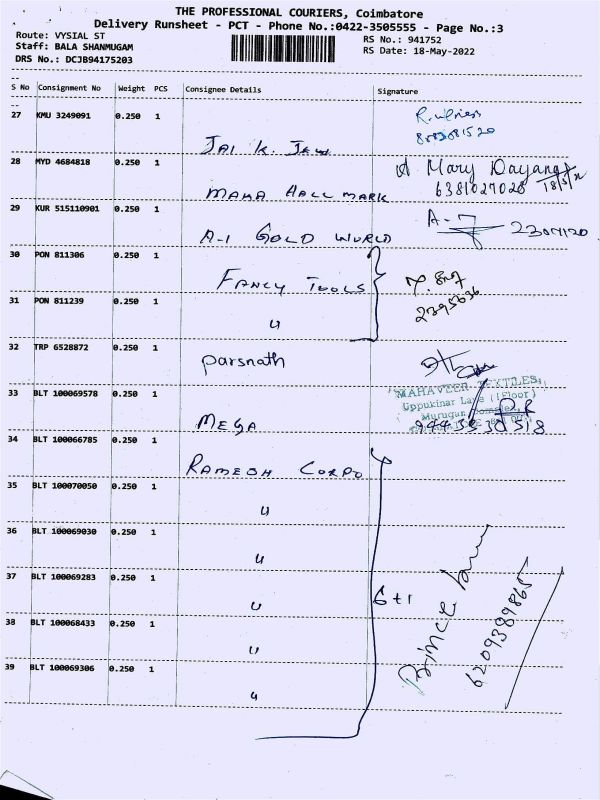 THE PROFESSIONAL COURIERS, Coimbatore
Delivery Runsheet - PCT - Phone No.:0422-3505555 - Page No.:3
Route: VYSIAL ST
RS No.: 941752
Staff: BALA SHANMUGAM
RS Date: 18-May-2022
DRS No.: DCJB94175203
S No Consignment No Weight PCS Consignee Details Signature
27 KMU 3249091 0.250 1
JAI K. JEW
28 MYD 4684818 0.250 1
A Mary Dayana
6381027028 18/5/22
MAHA HALL MARK
29 KUR 515110901 0.250 1
A-1 GOLD WORLD
2301120
30 PON 811306 0.250 1
FANCY TOOLS
31 PON 811239 0.250 1
2395636
"
32 TRP 6528872 0.250 1
Parsnath
33 BLT 100069578 0.250 1
MAHAVEER TEXTILES,
Uppukinar Lane (I Floor)
Murugan Complex,
MEGA
34 BLT 100066785 0.250 1
RAMESH CORPO
35 BLT 100070050 0.250 1
"
36 BLT 100069030 0.250 1
"
37 BLT 100069283 0.250 1
"
6+1
38 BLT 100068433 0.250 1
"
39 BLT 100069306 0.250 1
"
Prince
6209389865